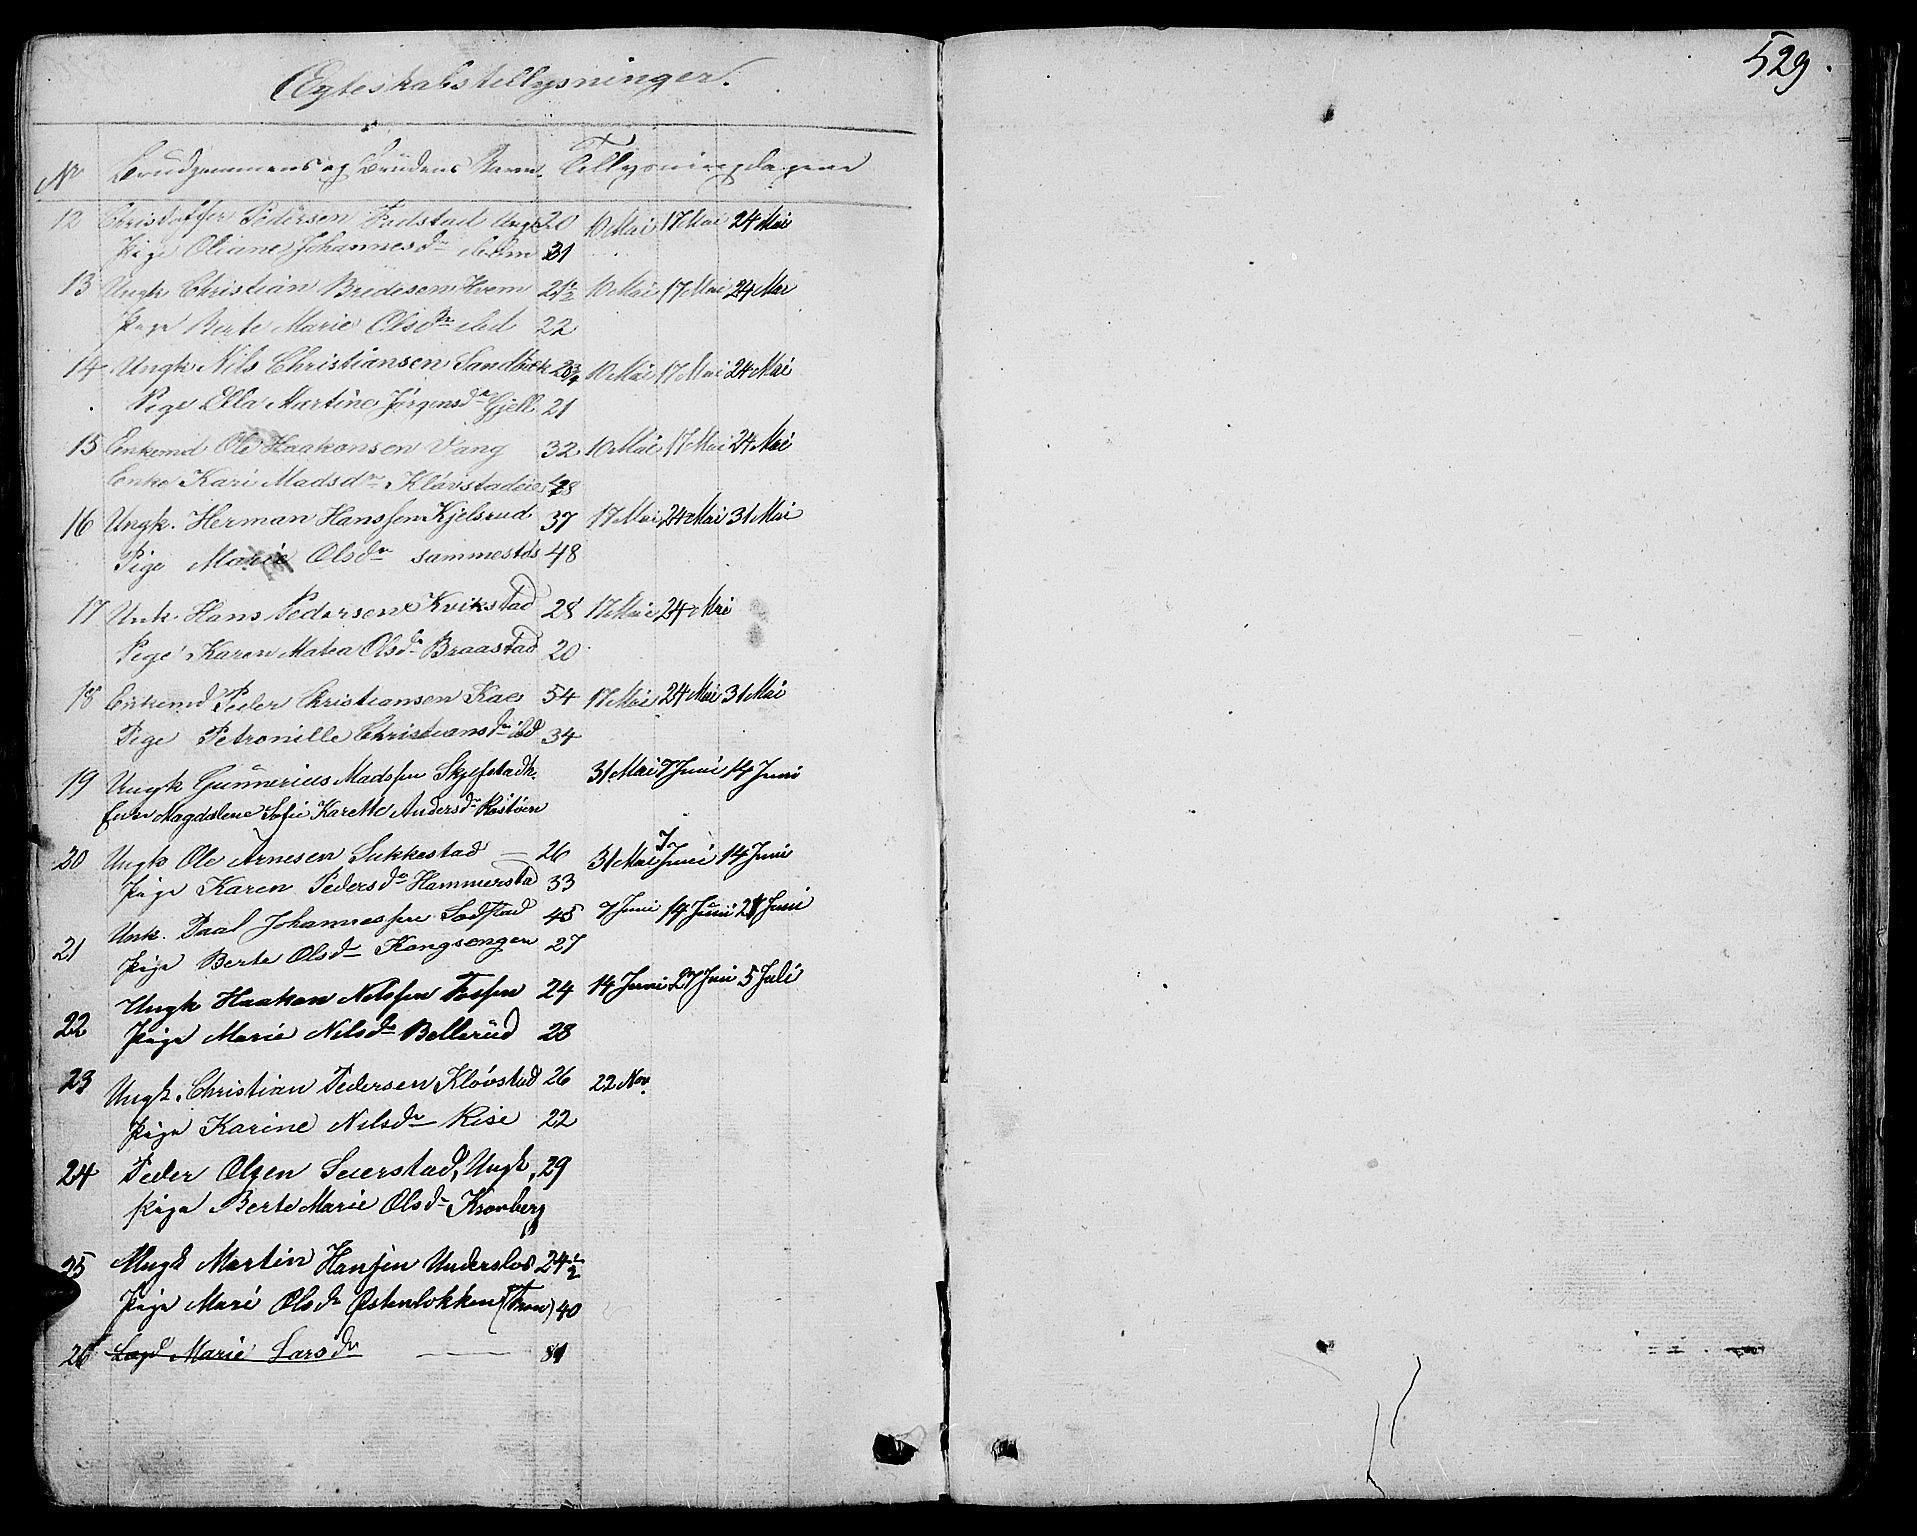 Ægteskabstillysninger.
529.
No Brudgommens og Brudens Navn. Tillysningsdagene
12 Christoffer Pedersen Fodstad Ungk 20 10 Mai 17 Mai 24 Mai
Pige Oliane Johannesdr 31
13 Ungk Christian Bredesen Hvem 21½ 10 Mai 17 Mai 24 Mai
Pige Berte Marie Olsdr ibd 22
14 Ungk Nils Christiansen Sandbæk 23¾ 10 Mai 17 Mai 24 Mai
Pige Martine Jørgensdr Gjell 21
15 Enkemd Ole Haakonsen Vang 32 10 Mai 17 Mai 24 Mai
Enke Kari Madsdr Kløvstadeie 48
16 Ungk. Herman Hanssen Kjelsrud 37 17 Mai 24 Mai 31 Mai
Pige Marie Olsdr sammestds 48
17 Unk. Hans Pedersen Kvikstad 28 17 Mai 24 Mai
Pige Karen Matea Olsdr Braastad 20
18 Enkemd Peder Christiansen Kae 54 17 Mai 24 Mai 31 Mai
Pige Petronille Christiansdr ibd 34
19 Ungk Gunnerius Madssen Skjefstadh. 31 Mai 7 Juni 14 Juni
Magdalene Sofie Karette Andersdr
20 Ungk Ole Arnesen Sukkestad — 26 31 Mai 7 Juni 14 Juni
Pige Karen Pedersdr Hammerstad 33
21 Unk. Paal Johannessen 45 7 Juni 14 Juni 21 Juni
Pige Berte Olsdr Kongsengen 27
22 Ungk Haakon Nilssen Fossen 24 14 Juni 27 Juni 5 Juli
Pige Marie Nilsdr Bellerud 28
23 Ungk. Christian Pedersen Kløvstad 26 22 Nov.
Pige Karine Nilsdr Rise 22
24 Peder Olsen Seierstad, Ungk, 29
Pige Berte Marie Olsdr Kronberg
25 Ungk Martin Hansen Underslos 24½
Pige Mari Olsdr Østenlokken (Tron) 40
26 Marie Larsdr — 81